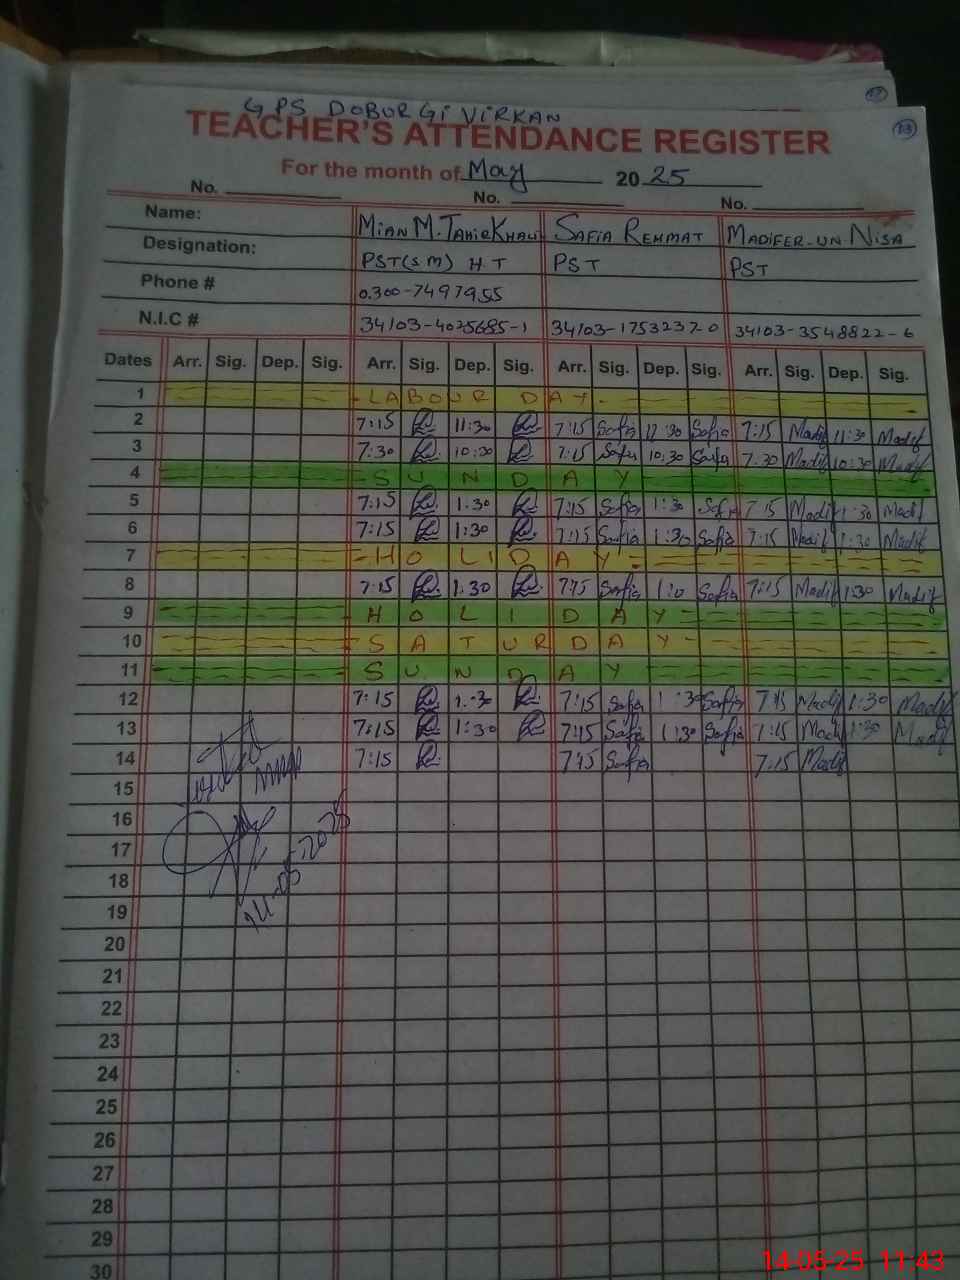 GPS DOBURGI VIRKAN
TEACHER'S ATTENDANCE REGISTER
For the month of May 2025
No. No. No.
Name: MIAN M. TAHIR KHALI SAFIA REHMAT MADIFER-UN-NISA
Designation: PST(SM) H.T PST PST
Phone # 0.300-7497955
N.I.C # 34103-4025685-1 34103-17532320 34103-3548822-6
Dates Arr. Sig. Dep. Sig. Arr. Sig. Dep. Sig. Arr. Sig. Dep. Sig. Arr. Sig. Dep. Sig.
1 LABOUR DAY
2 7:15 11:30 7:15 Safia 11:30 Safia 7:15 Madif 11:30 Madif
3 7:30 10:30 7:15 Safia 10:30 Safia 7:30 Madif 10:30 Madif
4 SUNDAY
5 7:15 1:30 7:15 Safia 1:30 Safia 7:15 Madif 1:30 Madif
6 7:15 1:30 7:15 Safia 1:30 Safia 7:15 Madif 1:30 Madif
7 HOLIDAY
8 7:15 1:30 7:15 Safia Safia 7:15 Madif 1:30 Madif
9 HOLIDAY
10 SATURDAY
11 SUNDAY
12 7:15 1:30 7:15 Safia 1:30 Safia 7:15 Madif 1:30 Madif
13 7:15 1:30 7:15 Safia 1:30 Safia 7:15 Madif 1:30 Madif
14 7:15 7:15 Safia 7:15 Madif
15
16
17
18
14-05-2025
19
20
21
22
23
24
25
26
27
28
29
30
14-05-25 11:43